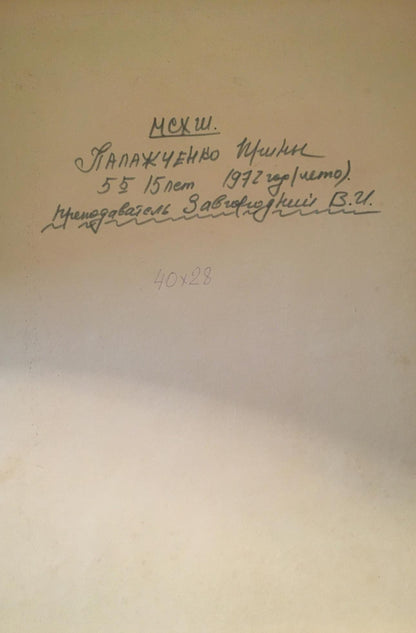 МСХШ.
Палажченко Ирины
5Б 15 лет 1972 год (лето).
Преподаватель Завгородний В.И.
40х28